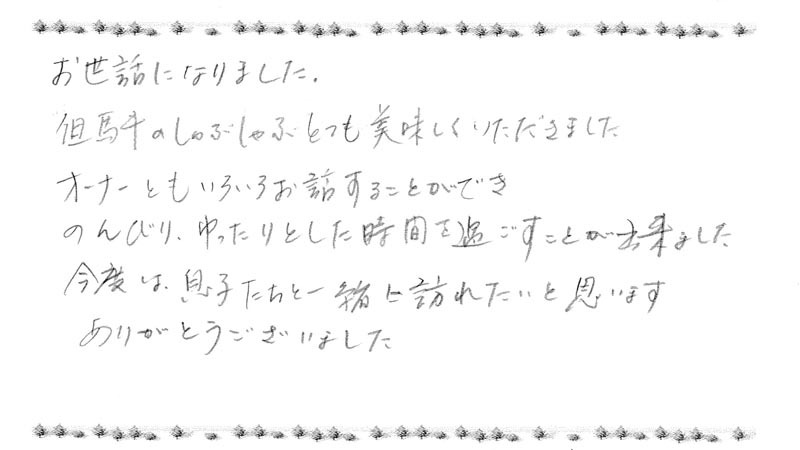 お世話になりました.
但馬牛のしゃぶしゃぶとても美味しくいただきました
オーナーともいろいろお話することができ
のんびり、ゆったりとした時間を過ごすことが出来ました
今度は、息子たちと一緒に訪れたいと思います
ありがとうございました